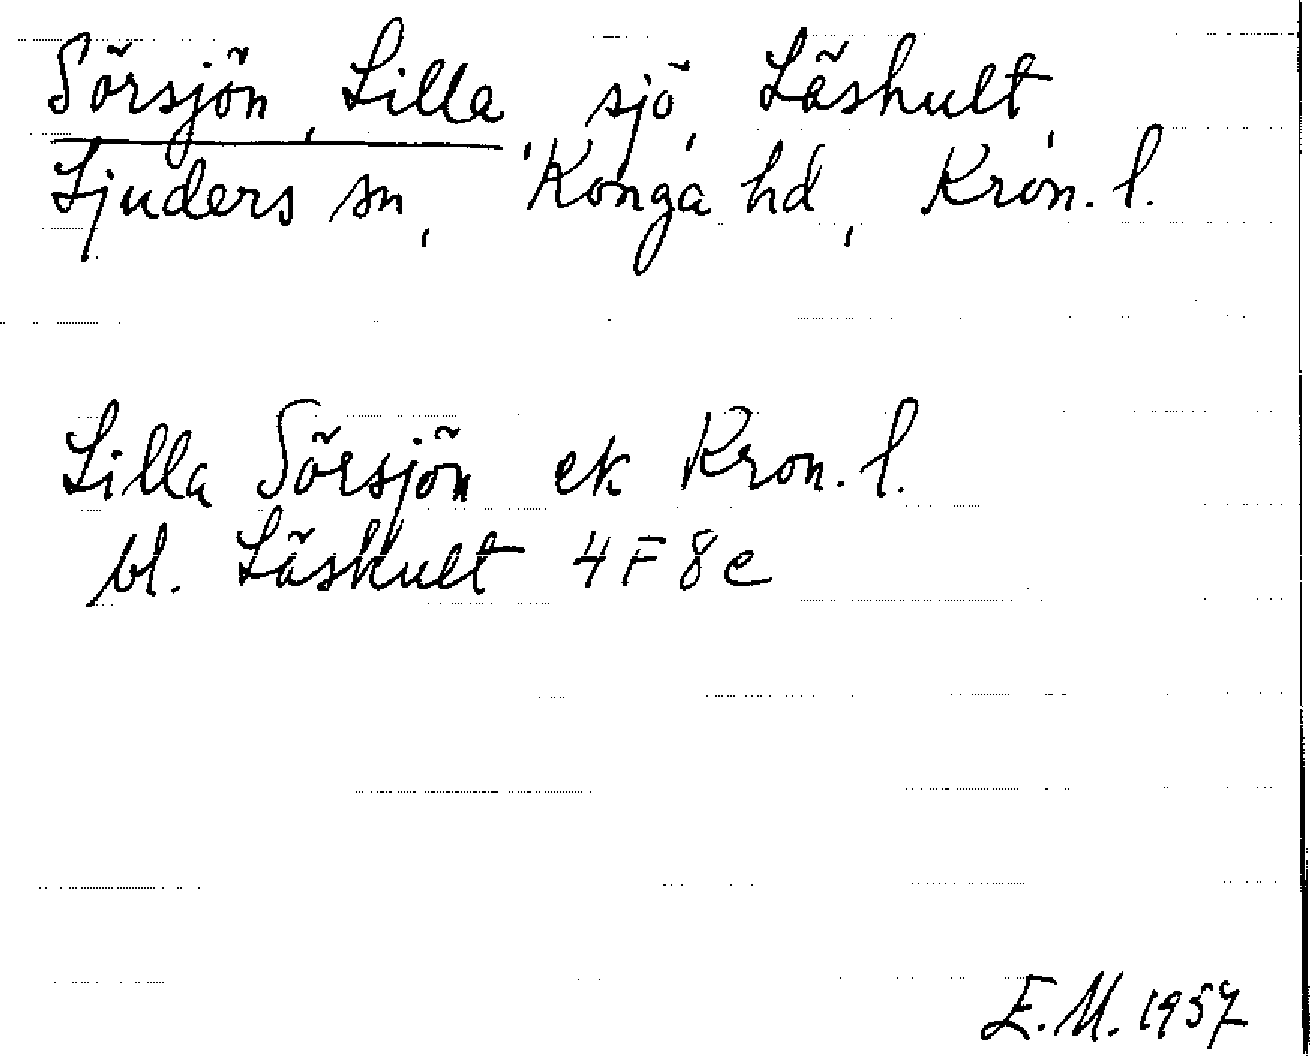 Sörsjön, Lilla, sjö, Läshult,
Ljuders sn, Konga hd, Kron. l.
Lilla Sörsjön ek Kron. l.
bl. Läshult 4F8e
E.M. 1957